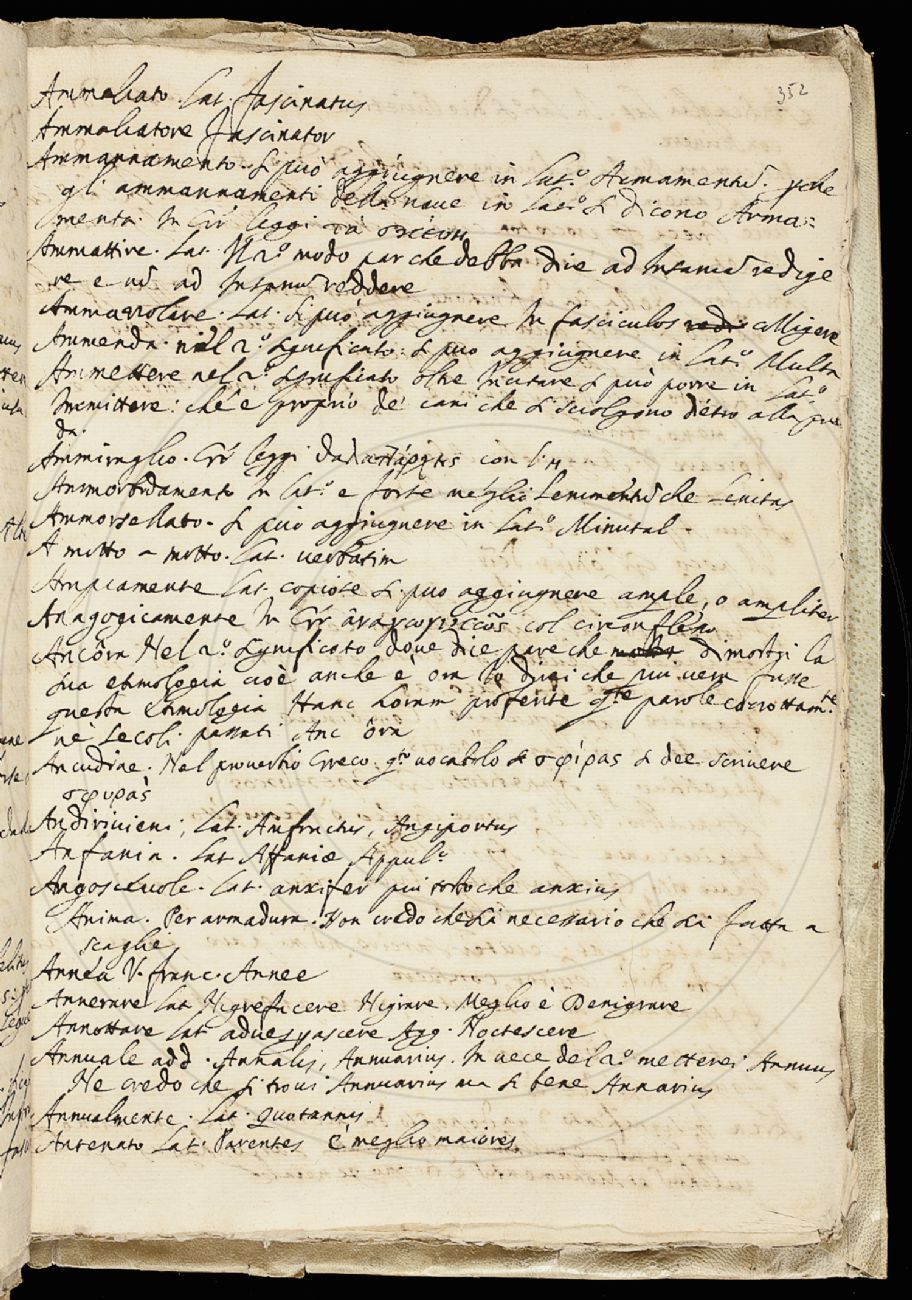 352
Ammaliato. Lat. Fascinatus
Ammaliatore Fascinator
Ammannamento. Si può aggiugnere in Lat.º Armamentũ. pche
gli ammannamenti della naue in Lat.º Si dicono Arma=
menta. In Grˢ leggi τὰ
Ammattire. Lat. Il 2.º modo par che debba dire ad Insaniã redige
re e nõ ad Insanũ reddere
Ammazzolare. Lat. Si può aggiugnere In fasciculos colligere
Ammenda. nel 2.º Significato: Si può aggiugnere in Lat.º Multa
Ammettere nel 2.º Significato oltre Incitare Si può porre in Lat.º
Immittere: che è proprio de' cani che Si sciolgono diétro alla pre
da.
Ammiraglio. Grˢ leggi con l'η
Ammorbidamento In Lat.º e forse meglio Lenimentũ che Lenitas
Ammorsellato. Si può aggiugnere in Lat.º Minutal.
A motto a motto. Lat. uerbatim
Ampiamente Lat. copiose Si può aggiugnere ample, o ampliter
Anagogicamente In Grˢ ἀναγωγικῶς col circonflesso
Ancóra Nel 2.º Significato doue dice pare che dimostri la
sua etimologia cioè anche è ora Io direi che piú uera fusse
questa Etimologia Hanc horam proferite q.ᵗᵉ parole corrottam.ᵗᵉ
ne Secoli passati Anc ôra
Ancudine. Nel prouerbio Greco. q.º uocabolo σφίρας Si dee Scriuere
σφυρὰς
Andirivieni, Lat. Anfractus, Angiportus
Anfania. Lat Affaniæ Appul.º
Angosceuole. Lat. anxifer più tosto che anxius
Anima. Per armadura. Non credo che sia necessario che sia fatta a
scaglie
Annéa V. franc. Annee
Annerare Lat Nigrefacere Nigrare. Meglio è Denigrare
Annottare Lat aduesperascere Agg. Noctescere
Annuale add. Annalis, Annuarius. In uece del 2.º metterei Annuus
Ne credo che si troui Annuarius ma si bene Annarius
Annualmente. Lat. Quotannis
Antenato Lat. Parentes è meglio maiores